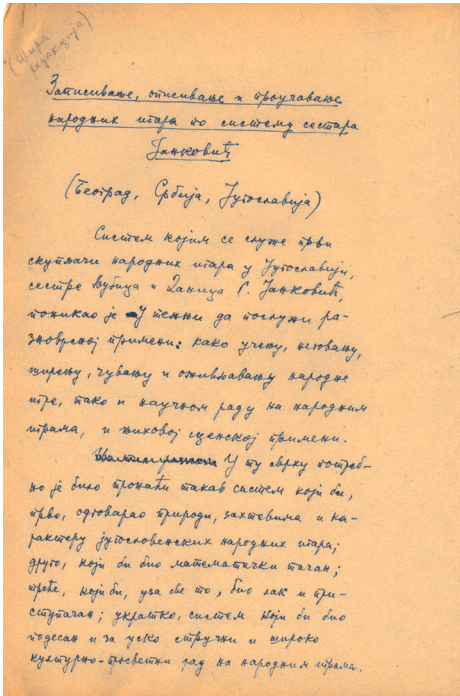 (Шира
редикција)
Записивање, описивање и проучавање
народних игара по систему сестара
Јанковић
(Београд, Србија, Југославија)
Систем којим се служе први
скупљачи народних игара у Југославији,
сестре Љубица и Даница С. Јанковић,
поникао је у тежњи да послужи ра-
зноврсној примени: како учењу, неговању,
ширењу, чувању и оживљавању народне
игре, тако и научном раду на народним
играма, и њиховој сценској примени.
У ту сврху потреб-
но је било пронаћи такав систем који би,
прво, одговарао природи, захтевима и ка-
рактеру југословенских народних игара;
друго, који би био математички тачан;
треће, који би, уза све то, био лак и при-
ступачан; укратко, систем који би био
подесан и за уско стручни и широко
културно-просветни рад на народним играма.